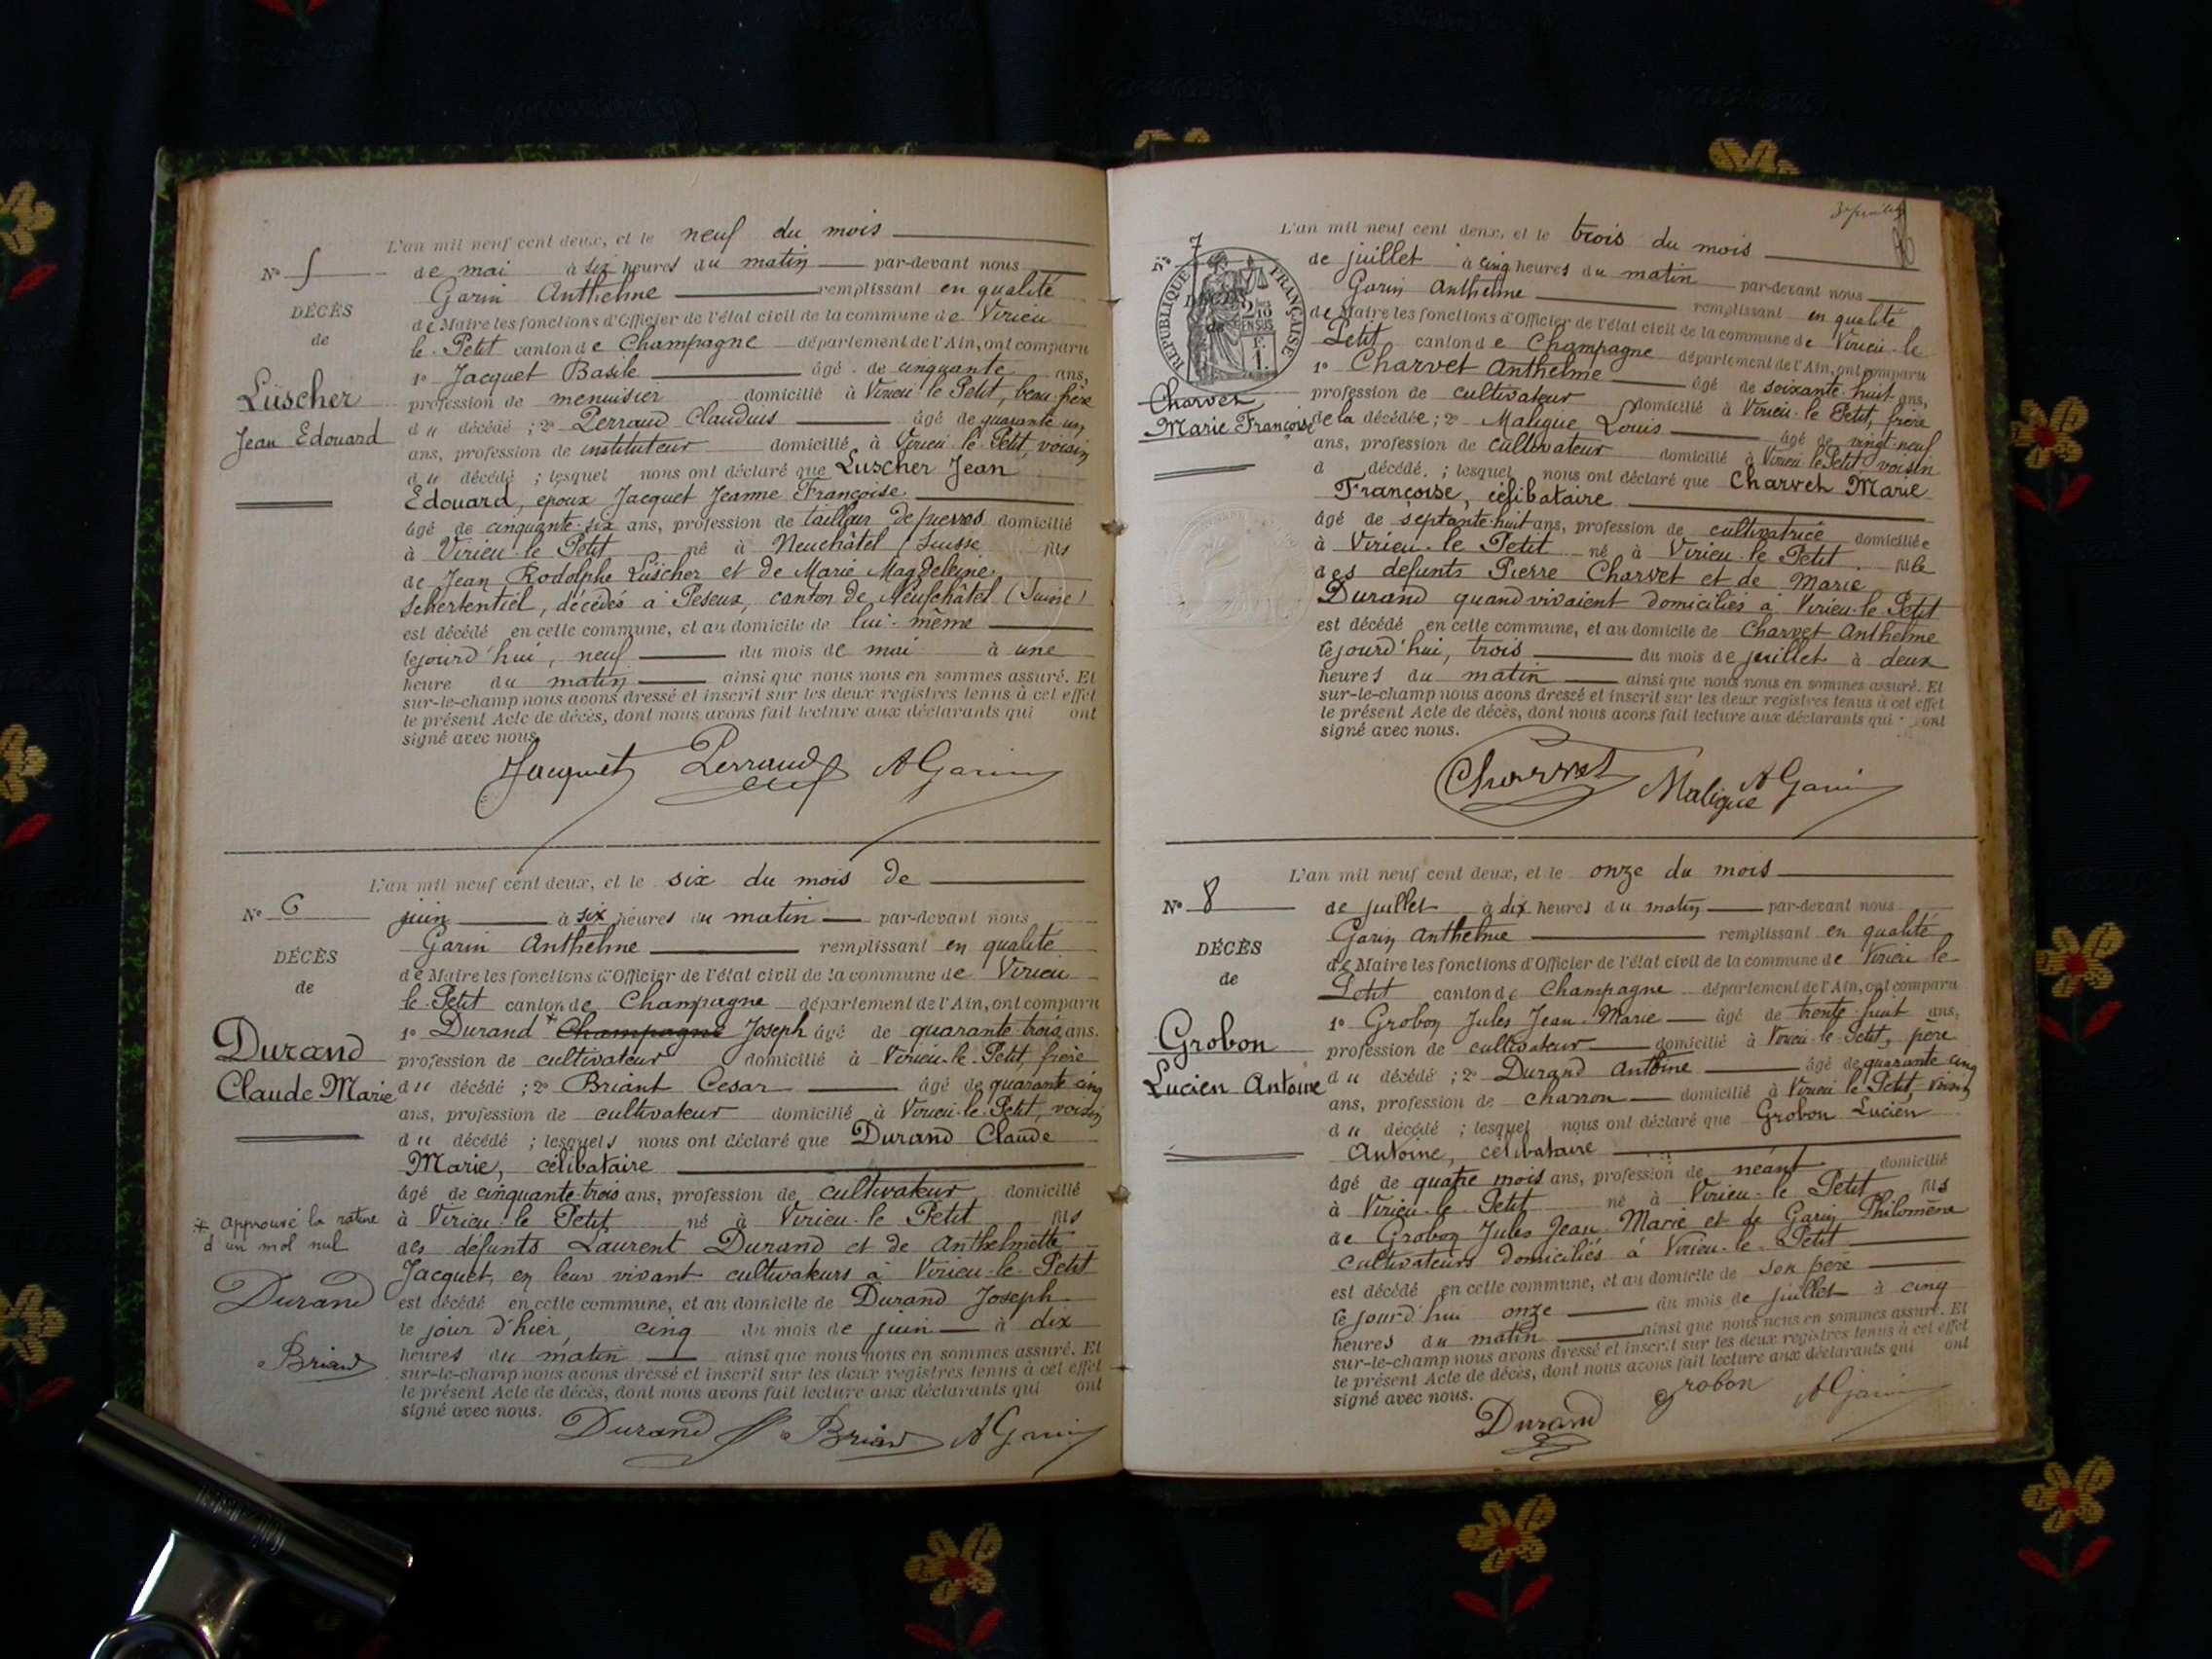 L'an mil neuf cent deux, et le neuf du mois
N° 5
de mai à six heures du matin par-devant nous
Garin Anthelme remplissant en qualité
DÉCÈS
de Maire les fonctions d'Officier de l'état civil de la commune de Virieu
de
le Petit canton de Champagne département de l'Ain, ont comparu
1° Jacquet Basile âgé de cinquante ans,
Lüscher
profession de menuisier domicilié à Virieu-le-Petit, beau-frère
Jean Edouard
du décédé ; 2° Perraud Claudius âgé de quarante un
ans, profession de instituteur domicilié à Virieu-le-Petit, voisin
du décédé ; lesquel nous ont déclaré que Luscher Jean
Edouard, époux Jacquet Jeanne Françoise
âgé de cinquante-six ans, profession de tailleur de pierres domicilié
à Virieu-le-Petit né à Neuchâtel Suisse fils
de Jean Rodolphe Lüscher et de Marie Magdeleine
Schertentiel, décédés à Peseux, canton de Neufchâtel (Suisse)
est décédé en cette commune, et au domicile de lui-même
cejourd'hui, neuf du mois de mai à une
heure du matin ainsi que nous nous en sommes assuré. Et
sur-le-champ nous avons dressé et inscrit sur les deux registres tenus à cet effet
le présent Acte de décès, dont nous avons fait lecture aux déclarants qui ont
signé avec nous.
Jacquet Perraud AGarin
L'an mil neuf cent deux, et le six du mois de
N° 6
juin à six heures du matin par-devant nous
Garin Anthelme remplissant en qualité
DÉCÈS
de Maire les fonctions d'Officier de l'état civil de la commune de Virieu
de
le-Petit canton de Champagne département de l'Ain, ont comparu
1° Durand * Champagne Joseph âgé de quarante-trois ans.
Durand
profession de cultivateur domicilié à Virieu-le-Petit, frère
Claude Marie
du décédé ; 2° Briant Cesar âgé de quarante cinq
ans, profession de cultivateur domicilié à Virieu-le-Petit, voisin
du décédé ; lesquels nous ont déclaré que Durand Claude
Marie, célibataire
âgé de cinquante-trois ans, profession de cultivateur domicilié
* Approuvé la rature
d'un mot nul
à Virieu-le Petit né à Virieu-le Petit fils
des défunts Laurent Durand et de Anthelmette
Jacquet, en leur vivant cultivateurs à Virieu-le-Petit
Durand
est décédé en cette commune, et au domicile de Durand Joseph
le jour d'hier, cinq du mois de juin à dix
Briand
heures du matin ainsi que nous nous en sommes assuré. Et
sur-le-champ nous avons dressé et inscrit sur les deux registres tenus à cet effet
le présent Acte de décès, dont nous avons fait lecture aux déclarants qui ont
signé avec nous.
Durand Briand AGarin
L'an mil neuf cent deux, et le trois du mois
N° 7
de juillet à cinq heures du matin par-devant nous
Garin Anthelme remplissant en qualité
de Maire les fonctions d'Officier de l'état civil de la commune de Virieu-le
RÉPUBLIQUE FRANÇAISE
2/10 EN SUS
F. 1.
Petit canton de Champagne département de l'Ain, ont comparu
1° Charvet Anthelme âgé de soixante-huit ans,
Charvet
profession de cultivateur domicilié à Virieu-le Petit, frère
Marie Françoise
de la décédée ; 2° Maligue Louis âgé de vingt-neuf
ans, profession de cultivateur domicilié à Virieu le Petit, voisin
d décédé. ; lesquel nous ont déclaré que Charvet Marie
Françoise, célibataire
âgé de septante-huit ans, profession de cultivatrice domiciliée
à Virieu-le Petit né à Virieu-le Petit fille
des défunts Pierre Charvet et de Marie
Durand quand vivaient domiciliés à Virieu-le-Petit
est décédé en cette commune, et au domicile de Charvet Anthelme
cejourd'hui, trois du mois de juillet à deux
heures du matin ainsi que nous nous en sommes assuré. Et
sur-le-champ nous avons dressé et inscrit sur les deux registres tenus à cet effet
le présent Acte de décès, dont nous avons fait lecture aux déclarants qui ont
signé avec nous.
Charvet Maligue AGarin
L'an mil neuf cent deux, et le onze du mois
N° 8
de juillet à dix heures du matin par-devant nous
Garin Anthelme remplissant en qualité
DÉCÈS
de Maire les fonctions d'Officier de l'état civil de la commune de Virieu le
de
Petit canton de Champagne département de l'Ain, ont comparu
1° Grobon Jules Jean-Marie âgé de trente-huit ans,
Grobon
profession de cultivateur domicilié à Virieu-le-Petit, père
Lucien Antoine
du décédé ; 2° Durand Antoine âgé de quarante cinq
ans, profession de charron domicilié à Virieu le Petit, voisin
du décédé ; lesquel nous ont déclaré que Grobon Lucien
Antoine, célibataire
âgé de quatre mois ans, profession de néant domicilié
à Virieu-le-Petit né à Virieu-le Petit fils
de Grobon Jules Jean-Marie et de Garin Philomène
cultivateurs domiciliés à Virieu-le-Petit
est décédé en cette commune, et au domicile de son père
cejourd'hui onze du mois de juillet à cinq
heures du matin ainsi que nous nous en sommes assuré. Et
sur-le-champ nous avons dressé et inscrit sur les deux registres tenus à cet effet
le présent Acte de décès, dont nous avons fait lecture aux déclarants qui ont
signé avec nous.
Durand Grobon AGarin